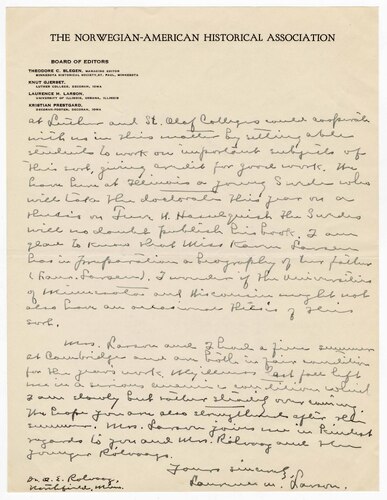 THE NORWEGIAN-AMERICAN HISTORICAL ASSOCIATION
BOARD OF EDITORS
THEODORE C. BLEGEN, MANAGING EDITOR
MINNESOTA HISTORICAL SOCIETY, ST. PAUL, MINNESOTA
KNUT GJERSET,
LUTHER COLLEGE, DECORAH, IOWA
LAURENCE M. LARSON,
UNIVERSITY OF ILLINOIS, URBANA, ILLINOIS
KRISTIAN PRESTGARD,
DECORAH-POSTEN, DECORAH, IOWA
at Luther and St. Olaf Colleges could cooperate
with us in this matter by setting able
students to work on important subjects of
this sort, giving credit for good work. We
have here at Illinois a young Swede who
will take the doctorate this year on a
thesis on Tuve N. Hasselquist. The Swedes
will no doubt publish his book. I am
glad to know that Miss Karen Larsen
has in preparation a biography of her father
(Laur. Larsen). I wonder if the universities
of Minnesota and Wisconsin might not
also have an occasional thesis of this
sort.
Mrs. Larson and I had a fine summer
at Cambridge and am both in fair condition
for the year's work. My illness last fall left
me in a serious condition which
I am slowly but rather steadily overcoming.
We hope you are also strengthened after the
summer. Mrs. Larson joins me in kindest
regards to you and Mrs. Rölvaag and the
younger Rölvaags.
Yours sincerely,
Laurence M. Larson.
Dr. O. E. Rölvaag,
Northfield, Minn.